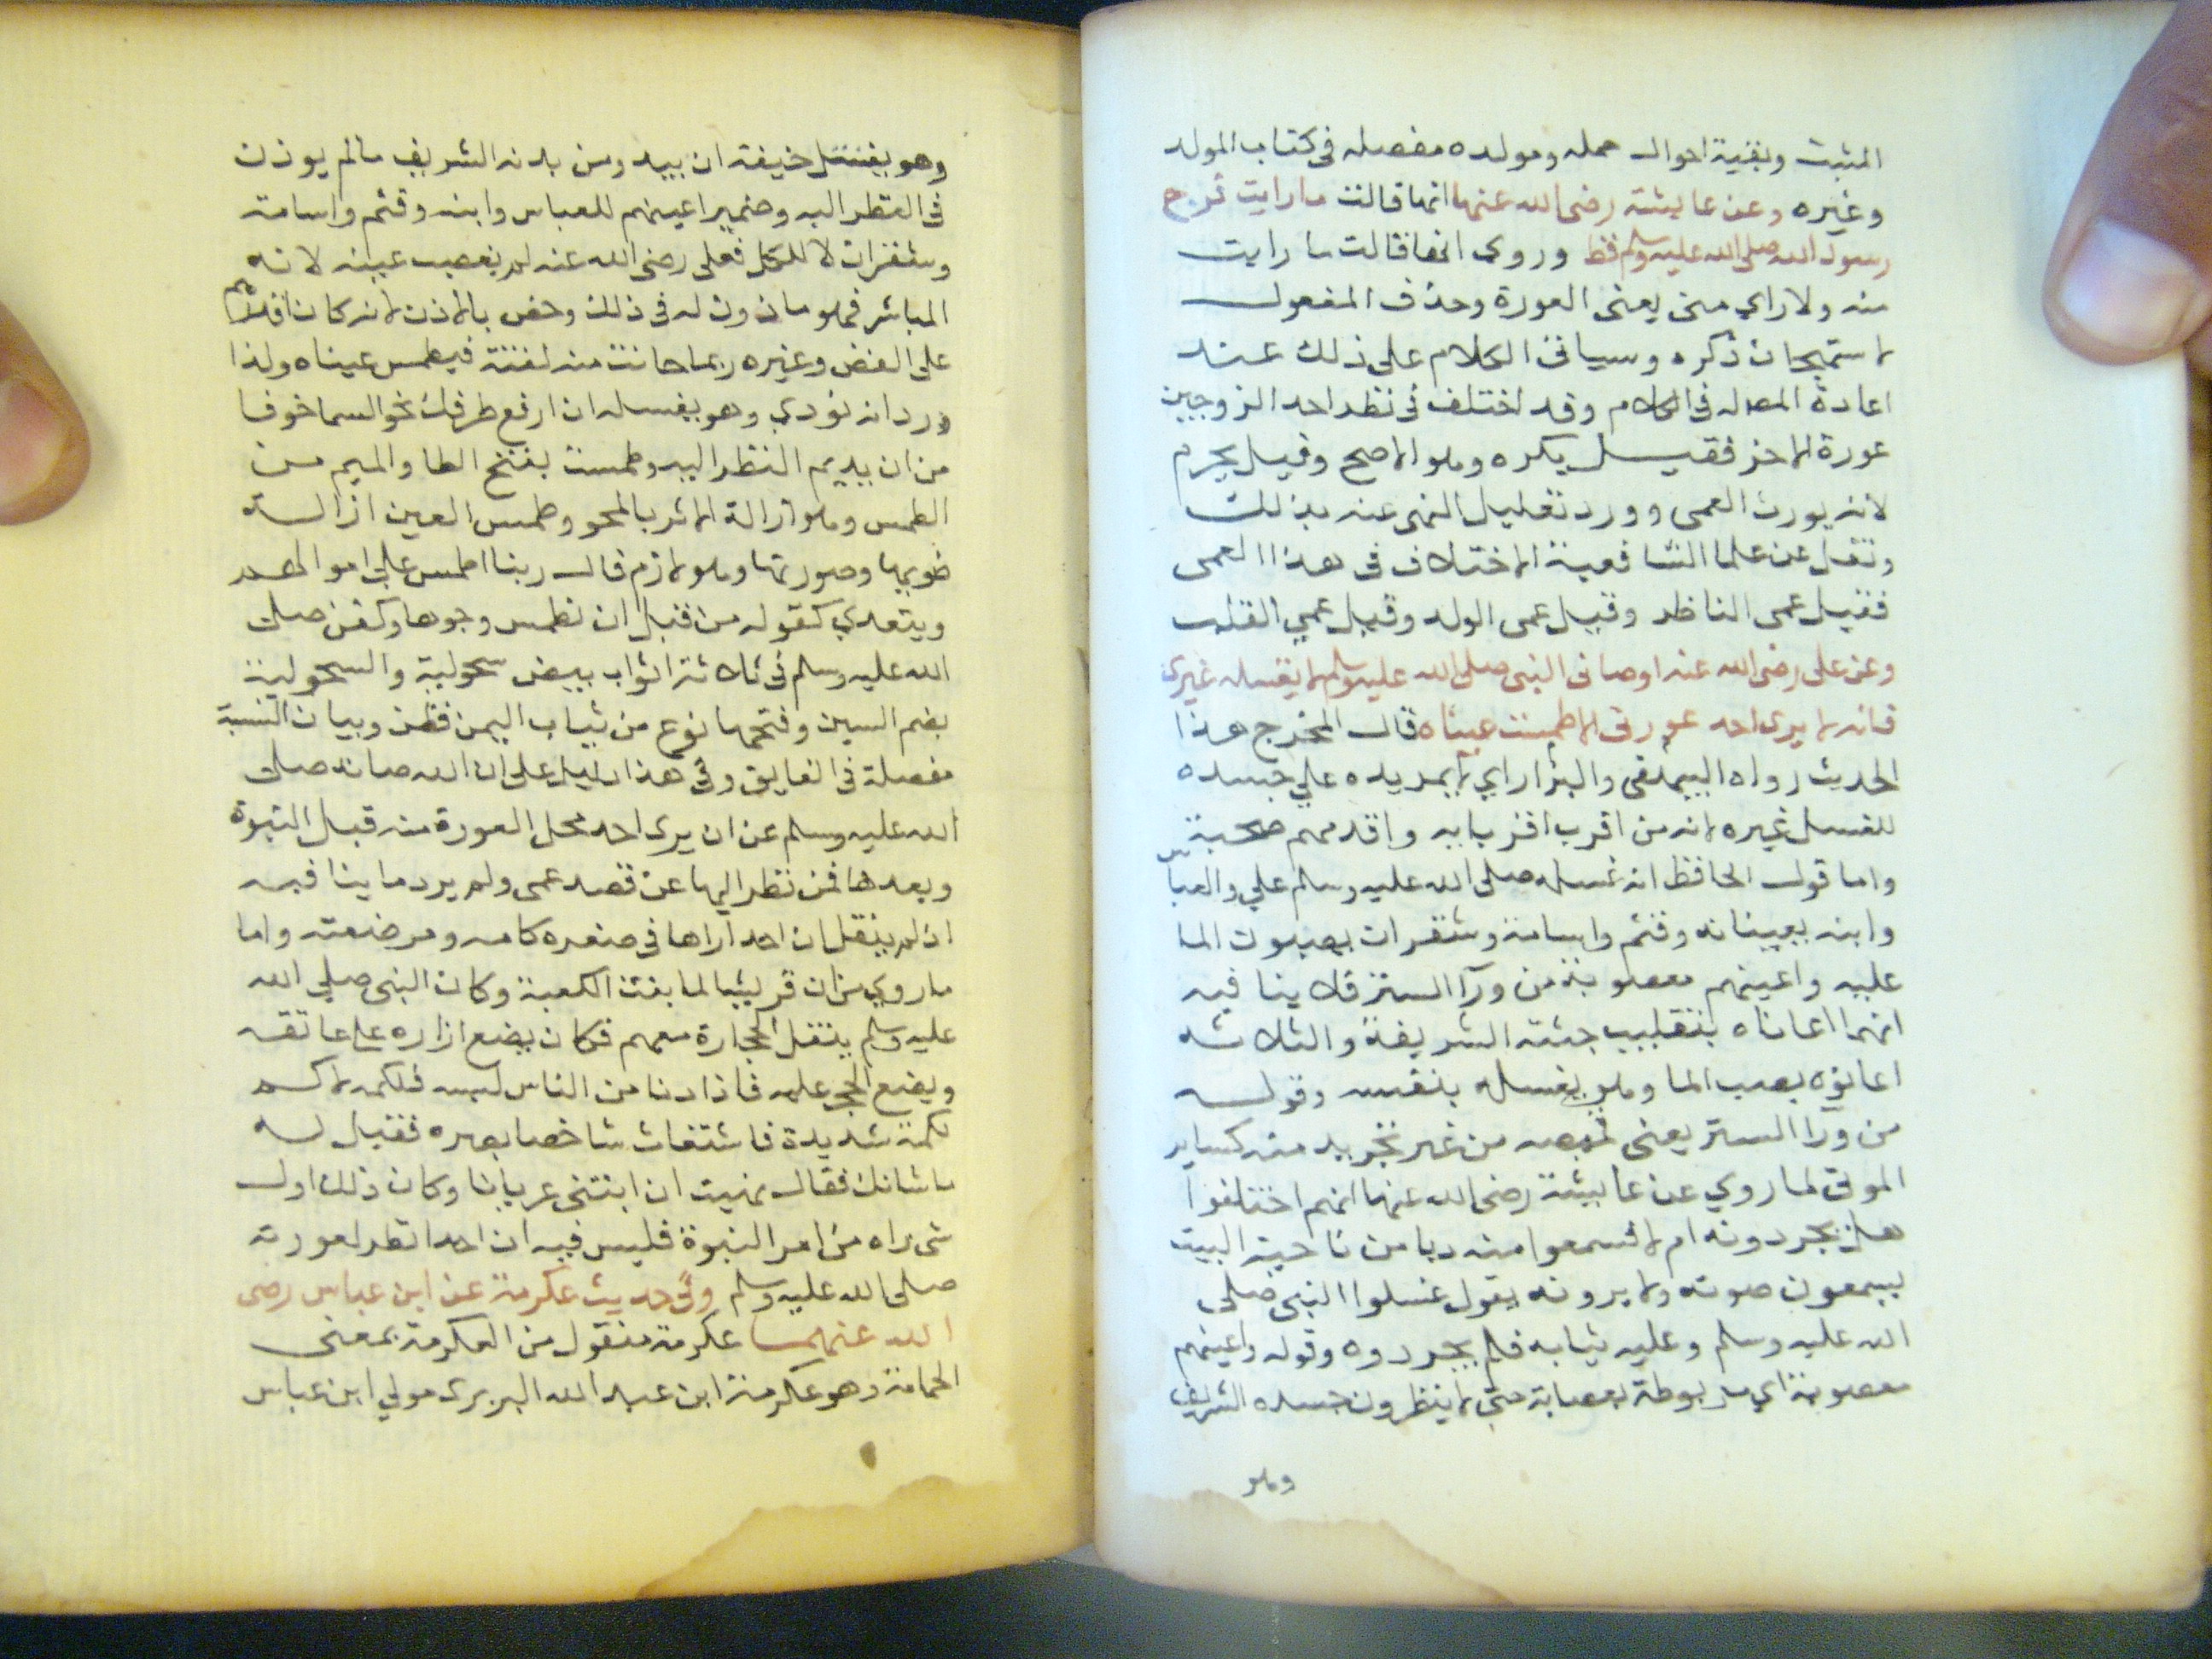 المثبت وبقية احوال حمله ومولده مفصله فى كتاب المولد
وغيره وعن عايشة رضى الله عنها انها قالت ما رايت فرج
رسول الله صلى الله عليه وسلم قط وروى انها قالت ما رايت
منه ولا راي منى يعنى العورة وحذف المفعول
لاستهجان ذكره وسياتى الكلام على ذلك عند
اعادة المصله فى الكلام وقد اختلف فى نظر احد الزوجين
عورة الاخر فقيل يكره وهو الاصح وقيل يحرم
لانه يورث العمى وورد تعليل النهى عنه بذلك
ونقل عن علما الشافعية الاختلاف فى هذا العمى
فقيل عمى الناظر وقيل عمى الولد وقيل عمي القلب
وعن على رضى الله عنه اوصانى النبى صلى الله عليه وسلم لا يغسله غيرى
فانه لا يرى احد عورتى الا طمست عيناه قال المخرج هذا
الحديث رواه البيهقى والبزار اي لا يمر يده علي جسده
للغسل غيره لانه من اقرب اقربايه واقدمهم صحبة
واما قول الحافظ انه غسله صلى الله عليه وسلم علي والعباس
وابنه يعينانه وقثم واسامة وشقران يصبون الما
عليه واعينهم معصوبة من ورآ الستر فلا ينافيه
انهما اعاناه بتقليب جثته الشريفة والثلاثه
اعانوه بصب الما وهو يغسله بنفسه وقوله
من ورآ الستر يعنى قميصه من غير تجريد منه كساير
الموتى لما روي عن عايشة رضى الله عنها انهم اختلفوا
هل يجردونه ام لا فسمعوا مناديا من ناحية البيت
يسمعون صوته ولا يرونه يقول غسلوا النبى صلى
الله عليه وسلم وعليه ثيابه فلم يجردوه وقوله واعينهم
معصوبة اي مربوطة بعصابة حتى لا ينظرون جسده الشريف
وهو
وهو يغسل خيفة ان يبدو من بدنه الشريف مالم يوذن
فى النظر اليه وضمير اعينهم للعباس وابنه وقثم واسامة
وشقران لا للكل فعلى رضى الله عنه لم يعصب عينه لانه
المباشر فهو ماذون له فى ذلك وخص بالاذن لانه كان اقدرهم
على الغض وغيره ربما حانت منه لفتة فيطمس عيناه ولذا
ورد انه نودي وهو يغسله ان ارفع طرفك نحو السما خوفا
من ان يديم النظر اليه وطمست بفتح الطا والميم من
الطمس وهو ازالة الاثر بالمحو وطمس العين ازالة
ضويها وصورتها وهو لازم قال ربنا اطمس علي اموالهم
ويتعدي كقوله من قبل ان نطمس وجوها وكفن صلى
الله عليه وسلم فى ثلاثة اثواب بيض سحولية والسحولية
بضم السين وفتحها نوع من ثياب اليمن قطن وبيان النسبة
مفصلة فى الفايق وفى هذا دليل على ان الله صانه صلى
الله عليه وسلم عن ان يرى احد محل العورة منه قبل النبوة
وبعدها فمن نظر اليها عن قصد عمى ولم يرد ما ينافيه
اذ لم ينقل ان احدا راها فى صغره كامه ومرضعته واما
ما روي من ان قريشا لما بنت الكعبة وكان النبى صلي الله
عليه وسلم ينقل الحجارة معهم فكان يضع ازاره علي عاتقه
ويضع الحجر عليه فاذا دنا من الناس لبسه فلكمه لاكم
لكمة شديدة شاخصا بصره فقيل له
ما شانك فقال نهيت ان امشى عريانا وكان ذلك اول
شى راه من امر النبوة فليس فيه ان احدا نظر لعورته
صلى الله عليه وسلم وفى حديث عكرمة عن ابن عباس رضى
الله عنهما عكرمة منقول من العكرمة بمعنى
الحمامة وهو عكرمة ابن عبد الله البربرى مولي ابن عباس